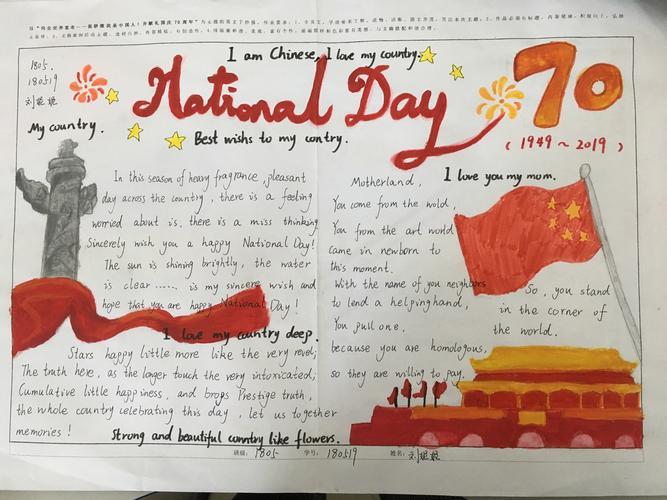 I am Chinese, I love my country.
1805.
180519
National Day
70
(1949～2019)
My country.
Best wishs to my contry.
In this season of heavy fragrance, pleasant
day across the country, there is a feeling
worried about is, there is a miss thinking
Sincerely wish you a happy National Day!
The sun is shining brightly, the water
is clear ...... is my sincere wish and
hope that you are happy National Day!
I love my country deep.
Stars happy little more like the very
The truth here, as the longer touch the very intoxicated;
Cumulative little happiness, and brops Prestige truth,
the whole country celebrating this day, let us together
memories!
Strong and beautiful conntry like flowers.
Motherland,
I love you my mum.
You come from the wold,
You from the art world
came in newborn to
this moment.
With the name of you neighbors
to lend a helping hand,
You pull one.
because you are homologous,
so they are willing to pay.
So, you stand
in the corner of
the world.
班级: 1805 学号: 180519 姓名: 刘